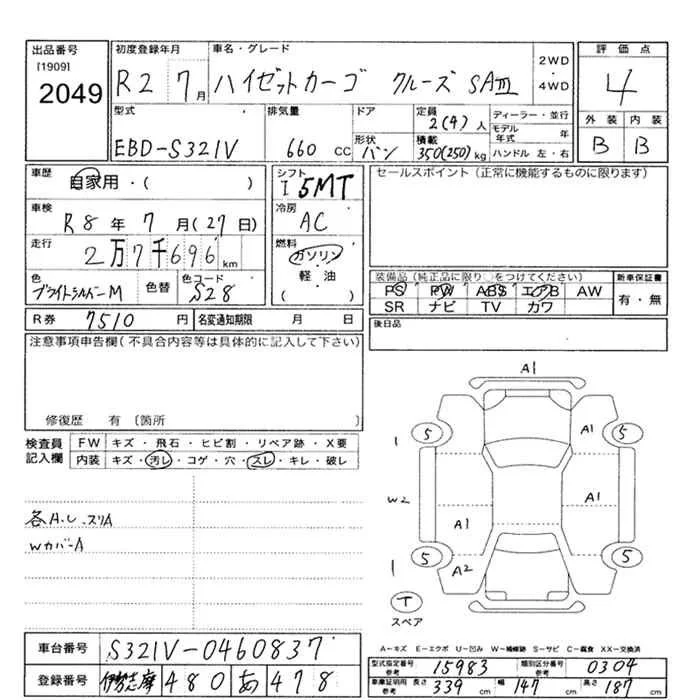 出品番号 初度登録年月 車名・グレード 評価点
[1909] 2WD
2049 R2 7月 ハイゼットカーゴ クルーズ SAⅢ ・4WD 4
型式 排気量 ドア 定員 2(4)人 ディーラー・並行 外装 内装
モデル年式 年
EBD-S321V 660 CC 形状 バン 積載 350(250)kg ハンドル 左・右 B B
車歴 自家用・( ) シフト I 5MT セールスポイント(正常に機能するものに限ります)
車検 R8年7月(27日) 冷房 AC
走行 2万7千696km 燃料 ガソリン
軽油
( )
色 ブライトシルバーM 色替 色コード S28
装備品(純正品に限り○をつけてください) 新車保証書
PS PW ABS エアB AW 有・無
SR ナビ TV カワ
R券 7510円 名変通知期限 月 日 後日品
注意事項申告欄(不具合内容等は具体的に記入して下さい)
修復歴 有 〔箇所 〕
検査員 FW キズ・飛石・ヒビ割・リペア跡・X要
記入欄 内装 キズ・汚レ・コゲ・穴・スレ・キレ・破レ
各A.U.スリA
WカバーA
A1
1 5 A1 5
W2 A1 A1
1 5 A2 5
T
スペア
A-キズ E-エクボ U-凹み W-補修跡 S-サビ C-腐食 XX-交換済
車台番号 S321V-0460837
登録番号 伊勢志摩 480 あ 478
型式指定番号 参考 15983 類別区分番号 参考 0304
車庫証明用 参考 長さ 339cm 幅 147cm 高さ 187cm